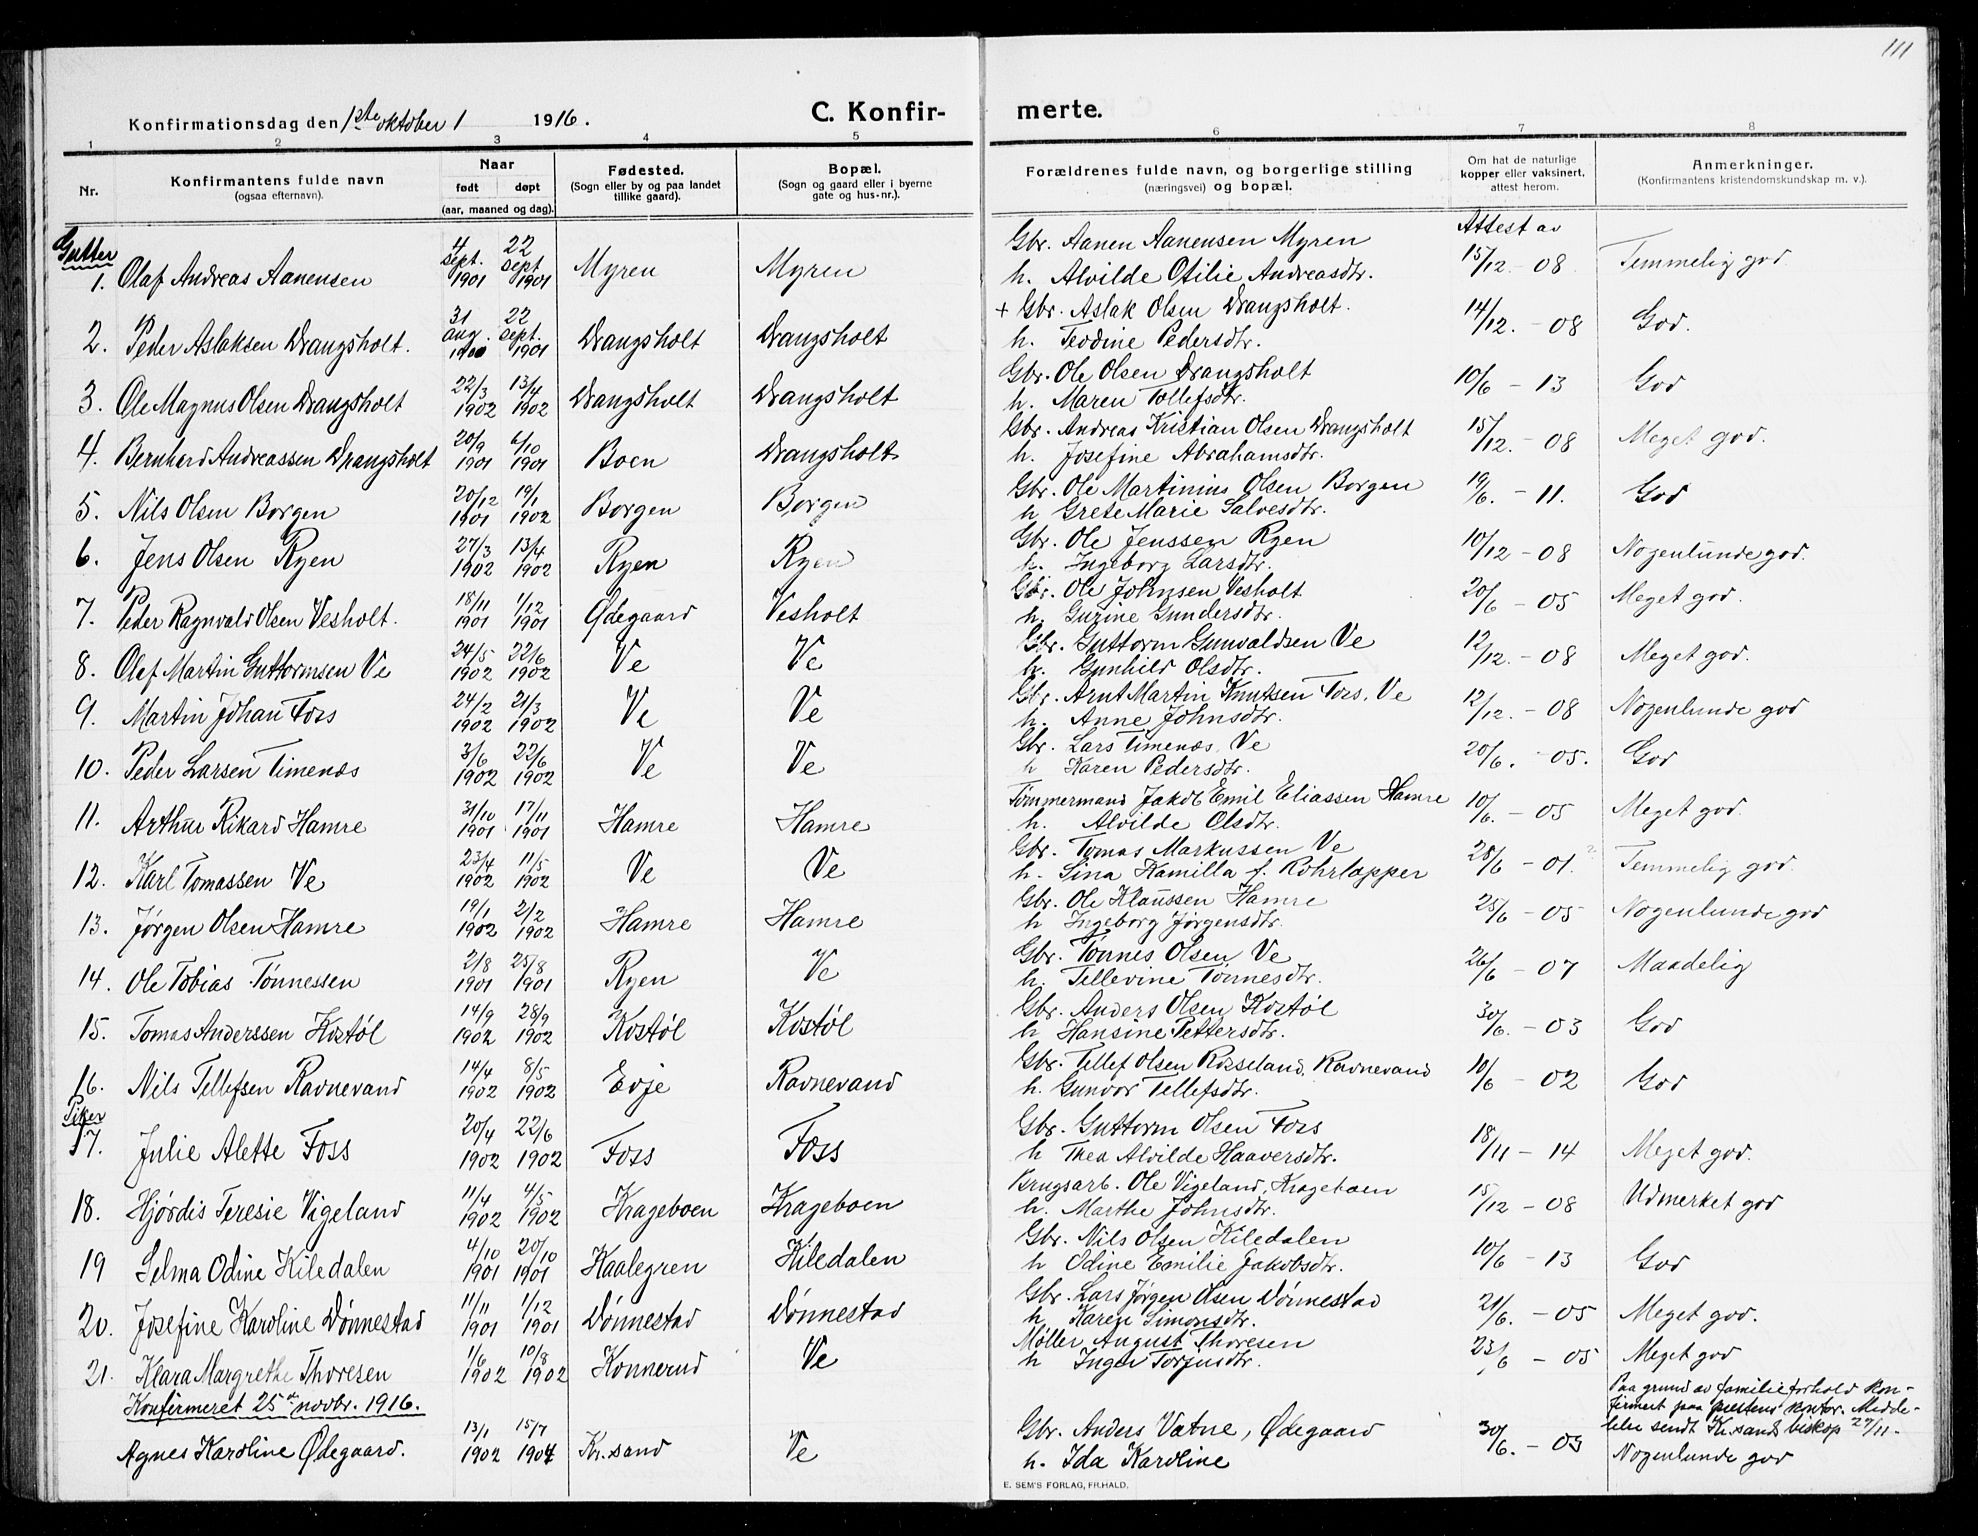 111
Konfirmationsdag den 1ste oktober 1916.
C. Konfirmerte.
1 2 3 4 5 6 7 8
Nr. | Konfirmantens fulde navn (ogsaa efternavn). | Naar født døpt (aar, maaned og dag). | Fødested. (Sogn eller by og paa landet tillike gaard). | Bopæl. (Sogn og gaard eller i byerne gate og hus-nr.). | Forældrenes fulde navn, og borgerlige stilling (næringsvei) og bopæl. | Om hat de naturlige kopper eller vaksinert, attest herom. | Anmerkninger. (Konfirmantens kristendomskundskap m. v.).
Gutter
Attest av
1. Olaf Andreas Aanensen | 4 sept. 1901 | 22 sept 1901 | Myren | Myren | Gbr. Aanen Aanensen Myren h. Alvilde Otilie Andreasdtr. | 15/12 - 08 | Temmelig god
2. Peder Aslaksen Drangsholt. | 31 aug. 1900 | 22 sept. 1901 | Drangsholt | Drangsholt | + Gbr. Aslak Olsen Drangsholt. h. Teodine Pedersdtr. | 14/12. - 08 | God.
3. Ole Magnus Olsen Drangsholt | 22/3 1902 | 13/4 1902 | Drangsholt | Drangsholt | Gbr. Ole Olsen Drangsholt h. Maren Tollefsdtr. | 10/6 - 13 | God
4. Bernhard Andreassen Drangsholt | 20/9 1901 | 6/10 1901 | Boen | Drangsholt | Gbr. Andreas Kristian Olsen Drangsholt h. Josefine Abrahamsdtr. | 15/12. - 08 | Meget god.
5. Nils Olsen Borgen | 20/12 1901 | 19/1 1902 | Borgen | Borgen | Gbr. Ole Martinius Olsen Borgen h Grete Marie Salvesdtr. | 19/6. - 11. | God
6. Jens Olsen Ryen | 27/3 1902 | 13/4 1902 | Ryen | Ryen | Gbr. Ole Jenssen Ryen h. Ingeborg Larsdtr. | 10/12 - 08 | Nogenlunde god.
7. Peder Ragnvald Olsen Vesholt. | 18/11 1901 | 1/12 1901 | Ødegaard | Vesholt | Gbr. Ole Johnsen Vesholt h. Gurine Gundersdtr. | 20/6 - 05 | Meget god.
8. Olaf Martin Guttormsen Ve | 24/5 1902 | 22/6 1902 | Ve | Ve | Gbr. Guttorm Gunvaldsen Ve h. Gunhild Olsdtr. | 12/12. - 08 | Meget god.
9. Martin Johan Foss | 24/2 1902 | 21/3 1902 | Ve | Ve | Gbr. Arnt Martin Knutsen Foss, Ve h. Anne Johnsdtr. | 12/12. - 08 | Nogenlunde god
10. Peder Larsen Timenæs | 3/6 1902 | 22/6 1902 | Ve | Ve | Gbr. Lars Timenæs, Ve h Karen Pedersdtr. | 20/6. - 05. | God
11. Arthur Rikard Hamre | 31/10 1901 | 17/11 1901 | Hamre | Hamre | Tømmermand Jakob Emil Eliassen Hamre h. Alvilde Olsdtr. | 10/6. - 05 | Meget god.
12. Karl Tomassen Ve | 23/4 1902 | 11/5 1902 | Ve | Ve | Gbr. Tomas Markussen Ve h. Sina Kamilla f. Rohrlapper | 28/6 - 01. ? | Temmelig god.
13. Jørgen Olsen Hamre | 19/1 1902 | 2/2 1902 | Hamre | Hamre | Gbr. Ole Klaussen Hamre h Ingeborg Jørgensdtr. | 25/6 - 05 | Nogenlunde god
14. Ole Tobias Tønnessen | 2/8 1901 | 25/8 1901 | Ryen | Ve | Gbr. Tønnes Olsen Ve h. Tellevine Tønnesdtr. | 26/6 - 07 | Maadelig
15. Tomas Anderssen Kostøl | 14/9 1902 | 28/9 1902 | Kostøl | Kostøl | Gbr. Anders Olsen Kostøl h Hansine Pettersdtr. | 30/6. - 03 | God
16. Nils Tellefsen Ravnevand | 14/4 1902 | 8/5 1902 | Evje | Ravnevand | Gbr. Tellef Olsen Røsseland, Ravnevand h. Gunvor Tellefsdtr. | 10/6 - 02 | God
Piker
17. Julie Alette Foss | 20/4 1902 | 22/6 1902 | Foss | Foss | Gbr. Guttorm Olsen Foss h Thea Alvilde Haaversdtr. | 18/11 - 14 | Meget god.
18. Hjørdis Teresie Vigeland | 11/4 1902 | 4/5 1902 | Krageboen | Krageboen | Brugsarb. Ole Vigeland, Krageboen h. Marthe Johnsdtr. | 15/12 - 08 | Udmerket god
19 Selma Odine Kiledalen | 4/10 1901 | 20/10 1901 | Kaalegren | Kiledalen | Gbr. Nils Olsen Kiledalen h Odine Emilie Jakobsdtr. | 10/6 - 13 | God
20. Josefine Karoline Dønnestad | 11/11 1901 | 1/12 1901 | Dønnestad | Dønnestad | Gbr. Lars Jørgen Olsen Dønnestad h Karen Simonsdtr. | 21/6. - 05 | Meget god.
21. Klara Margrethe Thoresen | 1/6 1902 | 10/8 1902 | Konnerud | Ve | Møller August Thoresen h Inger Torjusdtr. | 23/6 - 05 | Meget god
Konfirmeret 25de novbr. 1916.
Paa grund av familieforhold konfirmert paa prestens kontor. Meddelelse sendt Kr.sands biskop 27/11.
Agnes Karoline Ødegaard. | 13/1 1902 | 15/7 1904 | Kr.sand | Ve | Gbr. Anders Vatne, Ødegaard h. Ida Karoline | 30/6. - 03 | Nogenlunde god
E. SEM'S FORLAG, FR.HALD.